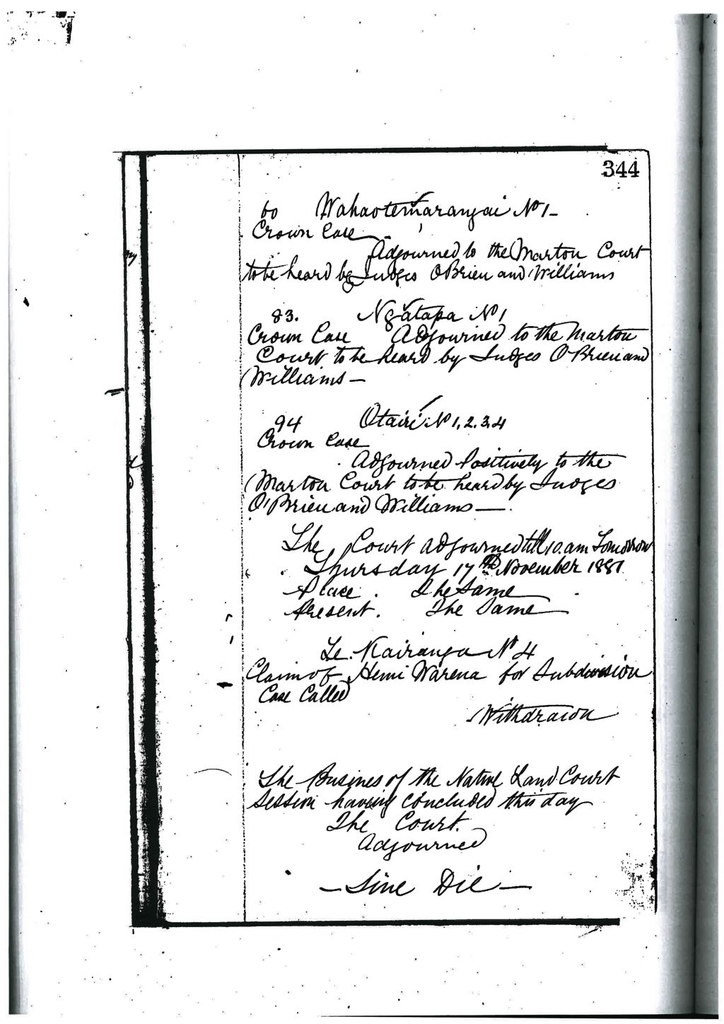 344
60 Wahaotemarangai No 1 —
Crown Case
Adjourned to the Marton Court
to be heard by Judges O'Brien and Williams
83. Ngatapa No 1
Crown Case Adjourned to the Marton
Court to be heard by Judges O'Brien and
Williams —
94 Otairi No 1, 2, 3, 4
Crown Case
Adjourned Positively to the
Marton Court to be heard by Judges
O'Brien and Williams —.
The Court adjourned till 10. am Tomorrow
Thursday 17th November 1881
Place. The Same
Present. The Same
Te Kairanga No 4
Claim of Hemi Warena for Subdivision
Case Called
Withdrawn
The Busines of the Native Land Court
Session having concluded this day
The Court.
Adjourned
— Sine Die —